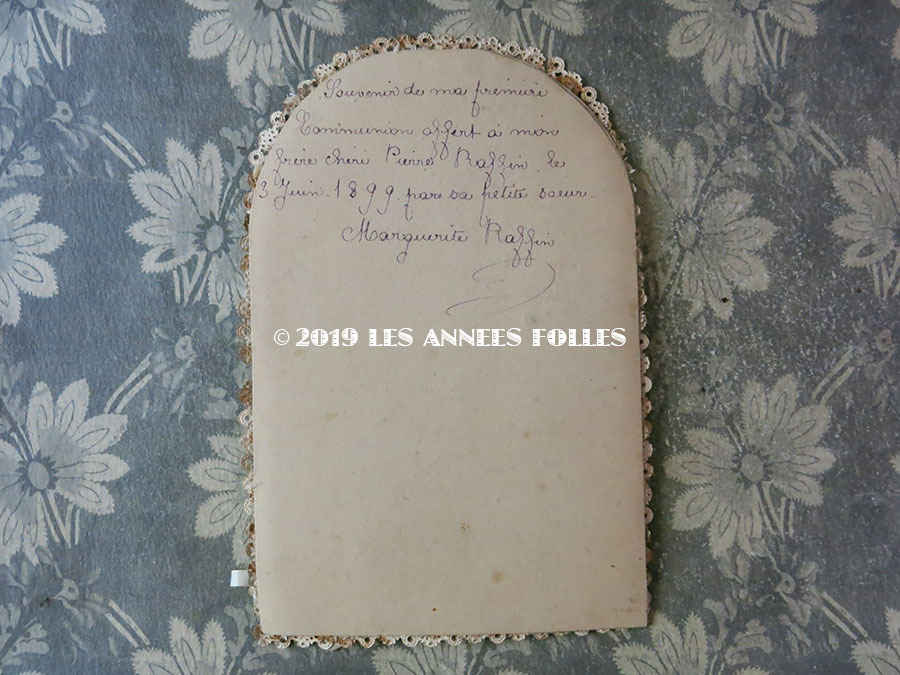 Souvenir de ma première
Communion offert à mon
frère chéri Pierre Raffin le
3 Juin 1899 par sa petite soeur.
Marguerite Raffin
© 2019 LES ANNEES FOLLES